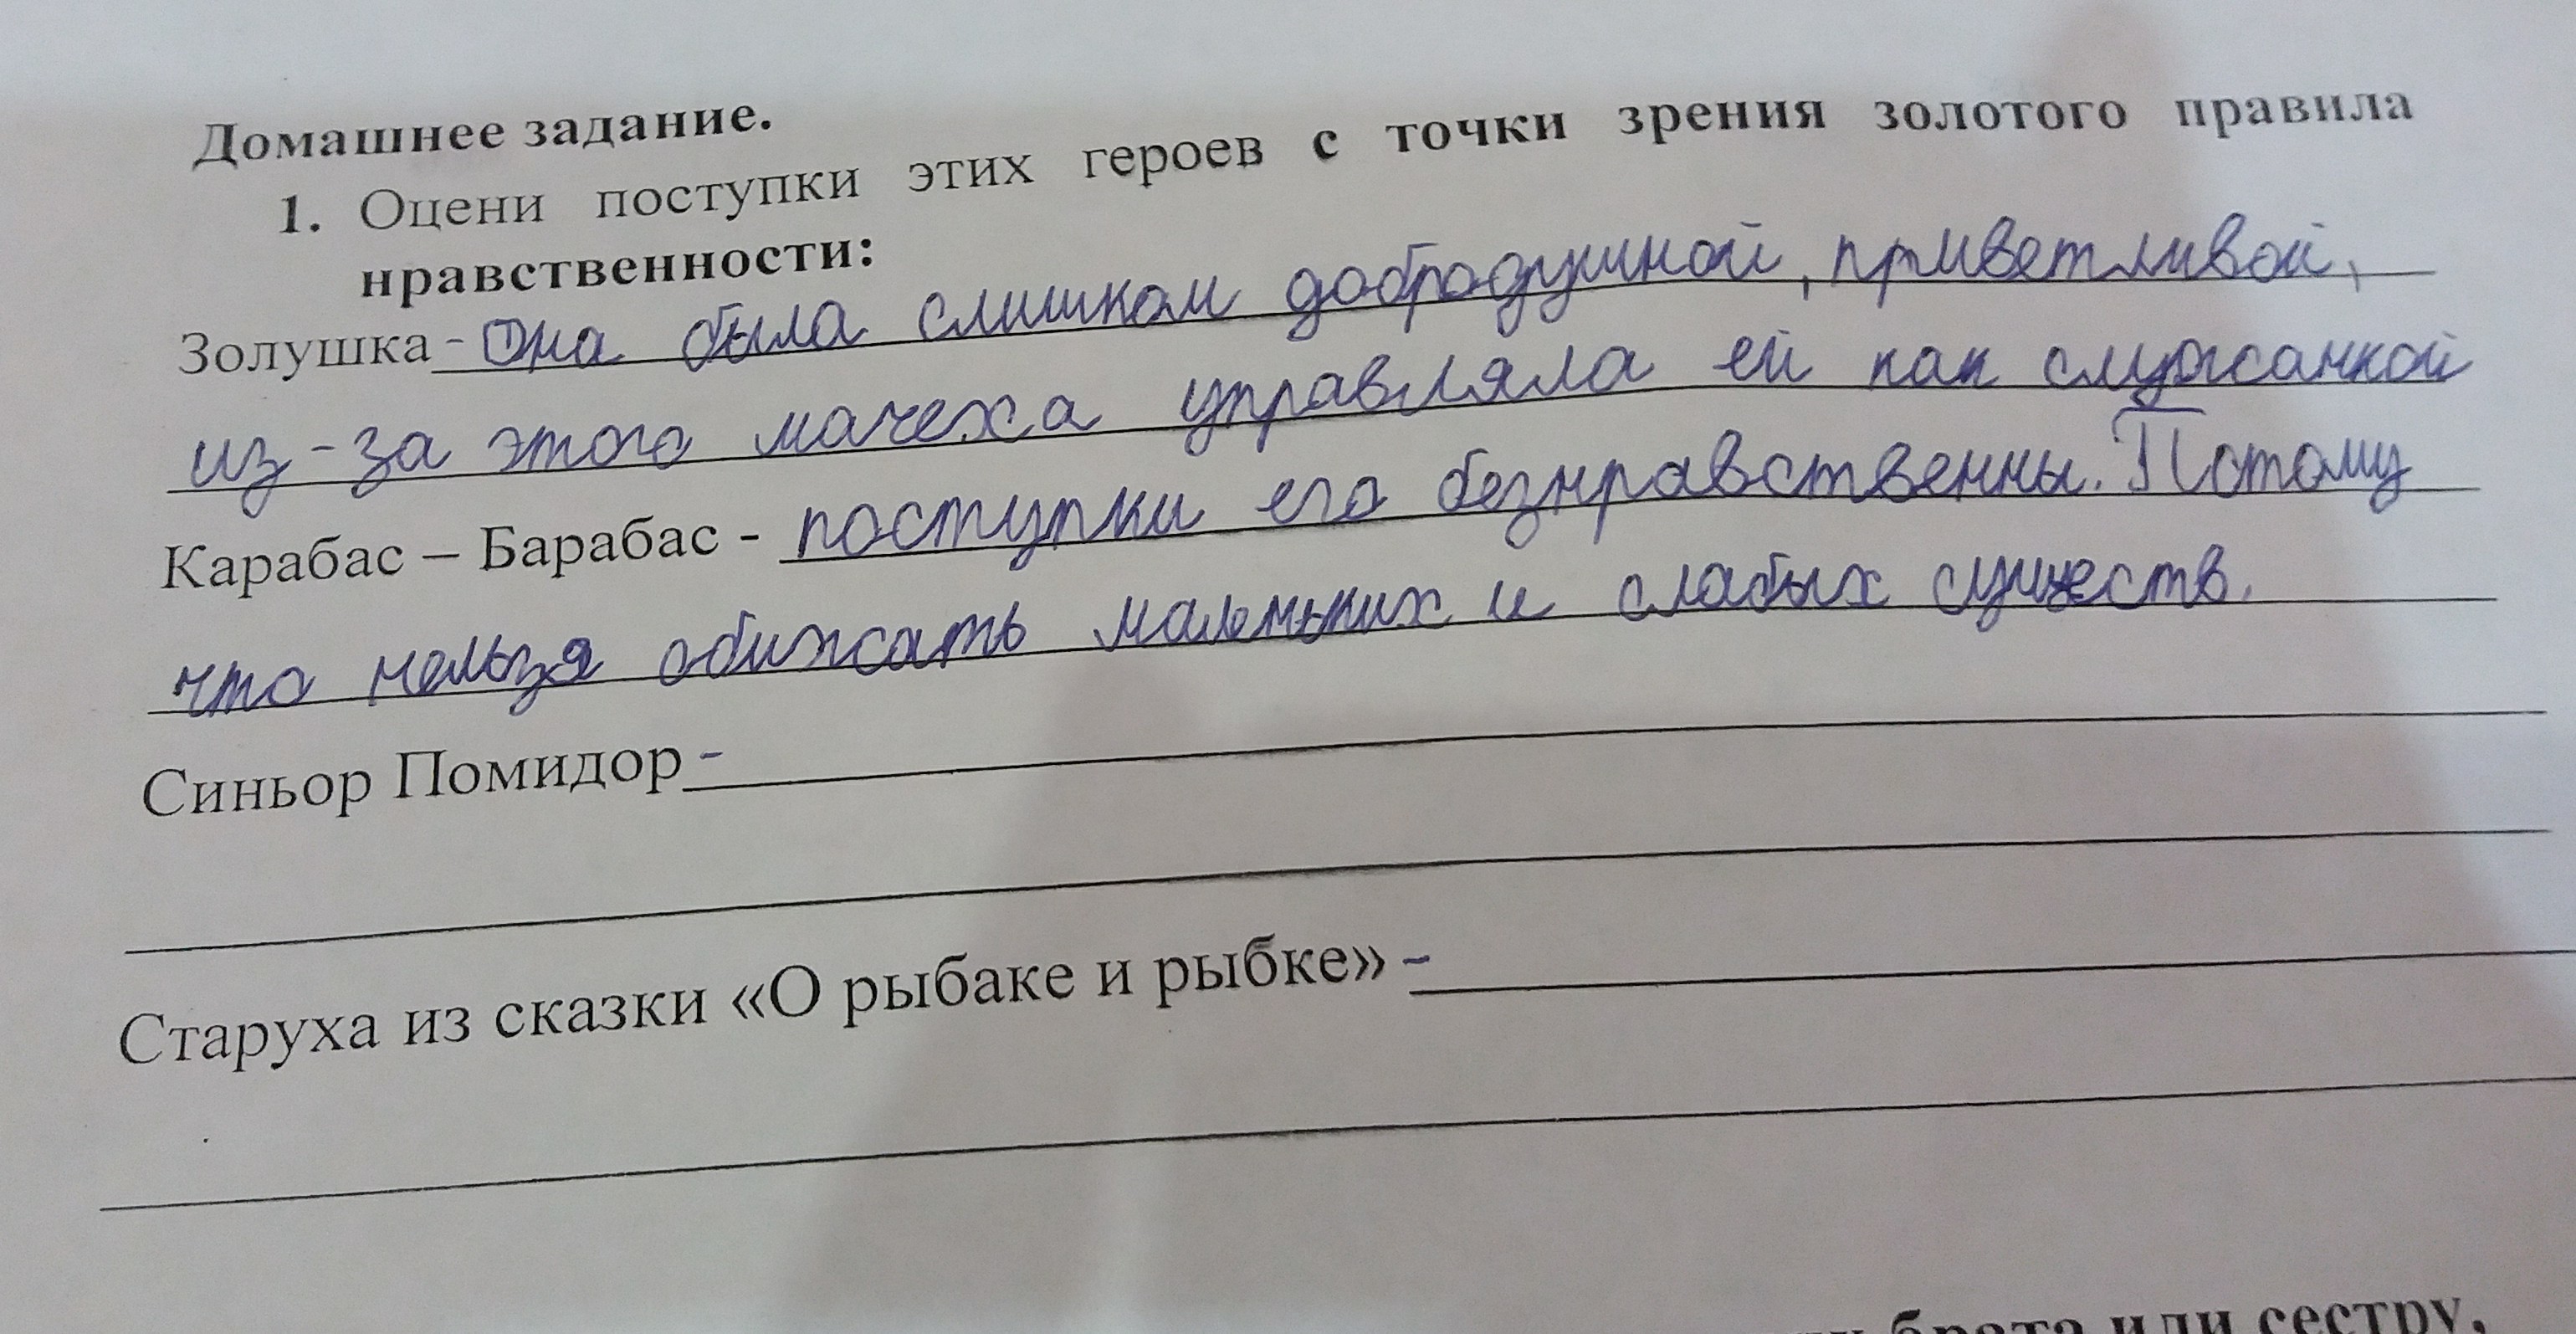 Домашнее задание.
1. Оцени поступки этих героев с точки зрения золотого правила
нравственности:
Золушка - Она была слишком добродушной, приветливой,
из-за этого мачеха управляла ей как служанкой
Карабас – Барабас - поступки его безнравственны. Потому
что нельзя обижать маленьких и слабых существ.
Синьор Помидор -
Старуха из сказки «О рыбаке и рыбке» -
брата или сестру,